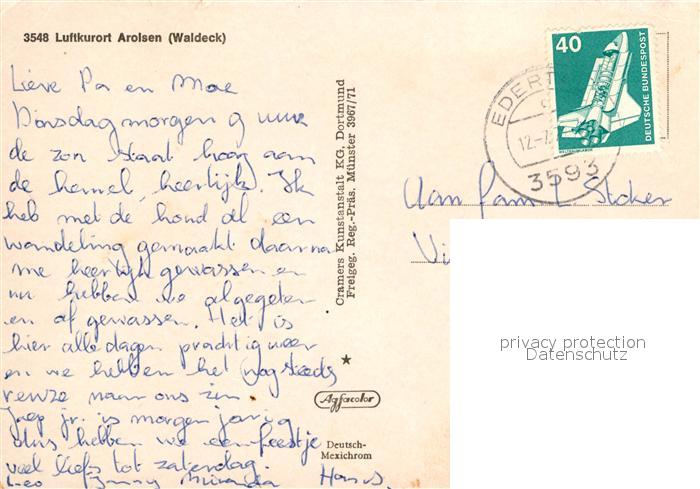 3548 Luftkurort Arolsen (Waldeck)
Lieve Pa en Moe
Dinsdagmorgen 9 uur
de zon staat hoog aan
de hemel, heerlijk. Ik
heb met de hond al een
wandeling gemaakt daarna
me heerlijk gewassen en
nu hebben we afgegeten
en afgewassen. Het is
hier alle dagen prachtig weer
en we hebben het nog steeds
reuze naar ons zin.
Joep jr. is morgen jarig
dus hebben we een feestje
veel liefs tot zaterdag.
Leo Miranda Hans.
Cramers Kunstanstalt KG. Dortmund
Freigeg. Reg.-Präs. Münster 3967/71
Agfacolor
Deutsch-
Mexichrom
40
DEUTSCHE BUNDESPOST
EDERT
12.-7.
3593
Aan fam. L. Stoker
privacy protection
Datenschutz